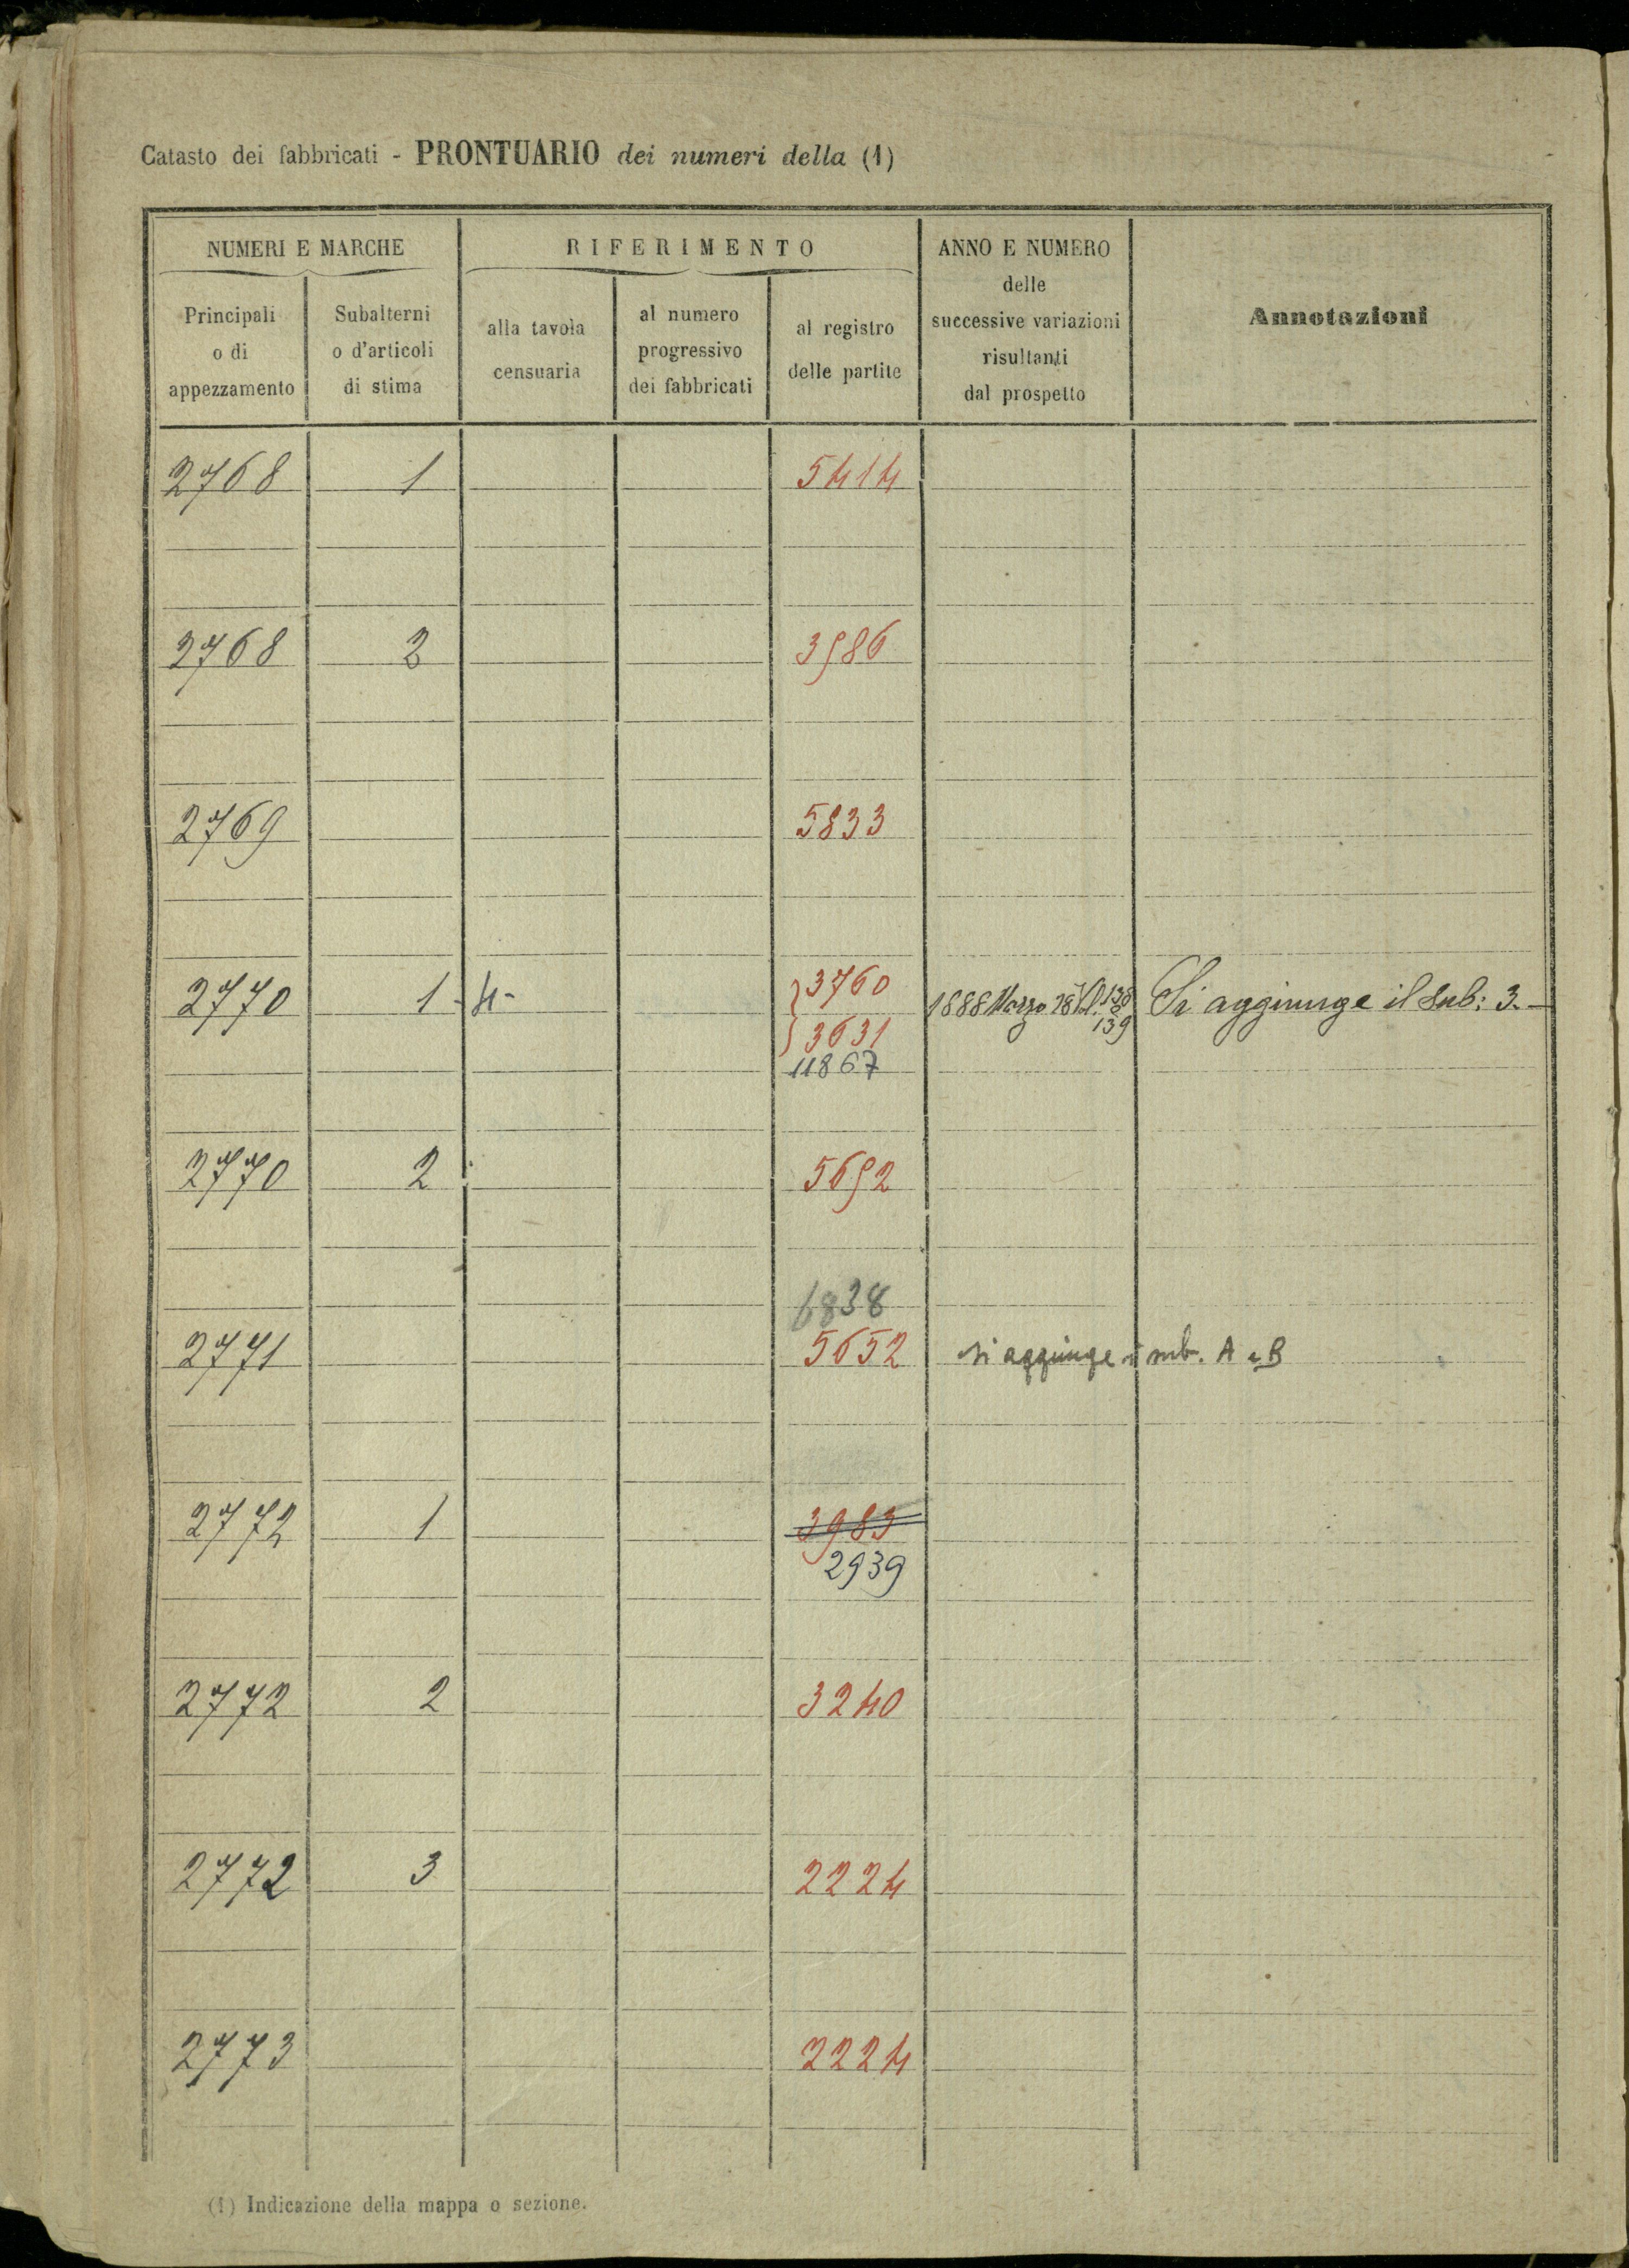 Catasto dei fabbricati - PRONTUARIO dei numeri della (1)
NUMERI E MARCHE
RIFERIMENTO
ANNO E NUMERO
delle
successive variazioni
risultanti
dal prospetto
Annotazioni
Principali
o di
appezzamento
Subalterni
o d'articoli
di stima
alla tavola
censuaria
al numero
progressivo
dei fabbricati
al registro
delle partite
2768 1 5414
2768 2 3986
2769 5833
2770 1 - 4 - 3760 1888 Marzo 28 Vol. 138 Si aggiunge il Sub: 3. -
3631 139
11867
2770 2 5692
6838
2771 5652 si aggiunge i sub. A e B
2772 1 3983
2939
2772 2 3240
2772 3 2224
2773 2224
(1) Indicazione della mappa o sezione.